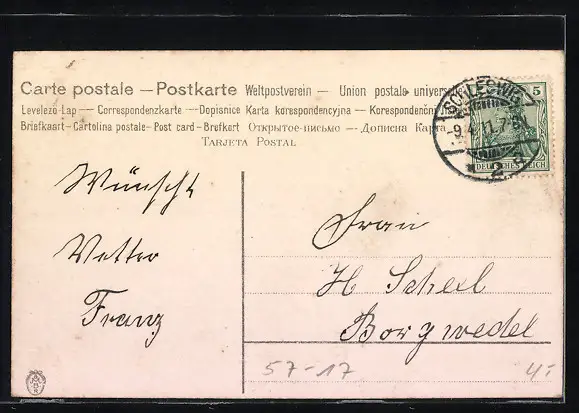 Carte postale — Postkarte Weltpostverein — Union postale universelle
Levelező-Lap — Correspondenzkarte — Dopisnice Karta korespondencyjna — Korespondenční
Briefkaart - Cartolina postale - Post card - Brefkort Открытое-письмо — Дописна Карта
TARJETA POSTAL
SCHLESWIG
5
DEUTSCHES REICH
2
Wünscht
Vetter
Franz
Frau
H Scheel
Borgwedel
57-17
4,-